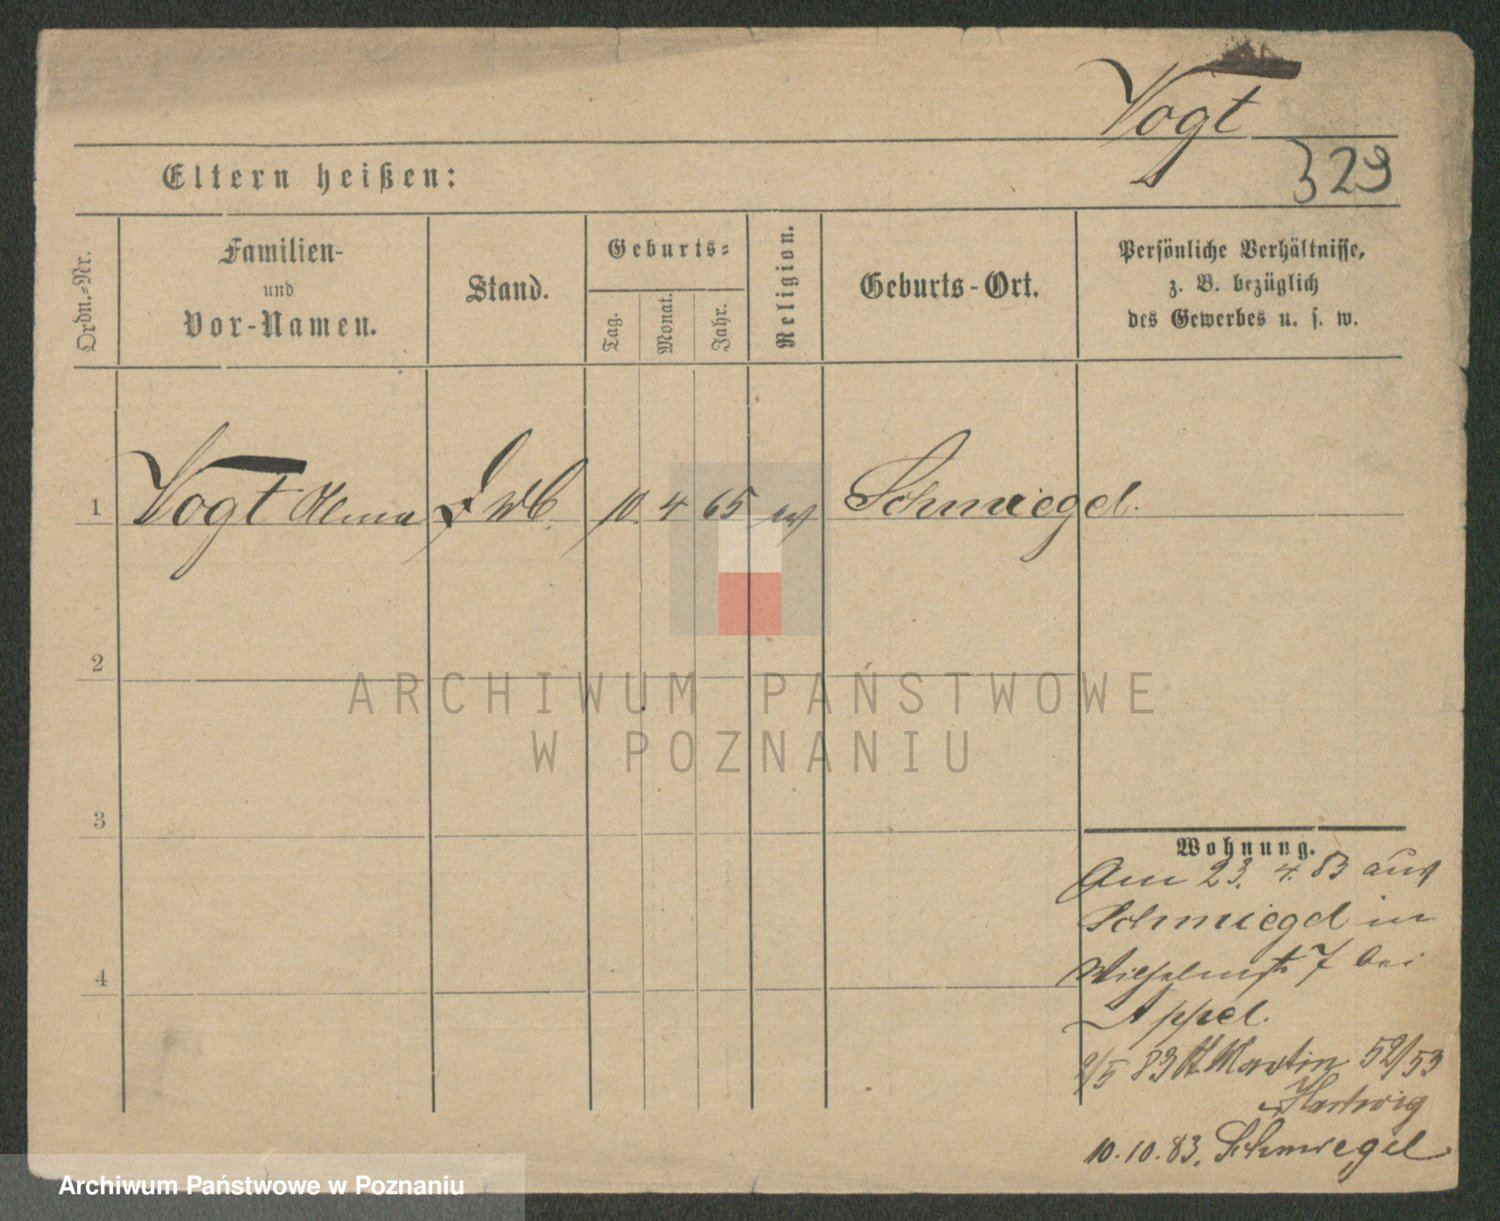 Vogt
329
Eltern heißen:
Ordn.-Nr.
Familien-
und
Vor-Namen.
Stand.
Geburts-
Tag.
Monat.
Jahr.
Religion.
Geburts-Ort.
Persönliche Verhältnisse,
z. B. bezüglich
des Gewerbes u. s. w.
1 Vogt 10. 4 65 Schmiegel.
2
3
4
ARCHIWUM PAŃSTWOWE
W POZNANIU
Wohnung.
Am 23. 4. 83 aus
Schmiegel in
Wilhelmstr 7 bei
Appel.
9/5 83 St Martin 52/53
Hartwig
10.10.83. Schmiegel
Archiwum Państwowe w Poznaniu